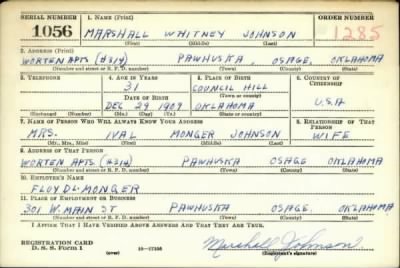 SERIAL NUMBER 1. NAME (Print) ORDER NUMBER
1056 MARSHALL WHITNEY JOHNSON 1285
(First) (Middle) (Last)
2. ADDRESS (Print)
WORTEN APTS (#314) PAWHUSKA, OSAGE, OKLAHOMA
(Number and street or R. F. D. number) (Town) (County) (State)
3. TELEPHONE 4. AGE IN YEARS 5. PLACE OF BIRTH 6. COUNTRY OF CITIZENSHIP
31 COUNCIL HILL
DATE OF BIRTH (Town or county)
DEC 29 1909 OKLAHOMA U.S.A
(Exchange) (Number) (Mo.) (Day) (Yr.) (State or country)
7. NAME OF PERSON WHO WILL ALWAYS KNOW YOUR ADDRESS 8. RELATIONSHIP OF THAT PERSON
MRS. IVAL MONGER JOHNSON WIFE
(Mr., Mrs., Miss) (First) (Middle) (Last)
9. ADDRESS OF THAT PERSON
WORTEN APTS. (#314) PAWHUSKA OSAGE OKLAHOMA
(Number and street or R. F. D. number) (Town) (County) (State)
10. EMPLOYER'S NAME
FLOYD L. MONGER
11. PLACE OF EMPLOYMENT OR BUSINESS
301 W. MAIN ST PAWHUSKA OSAGE, OKLAHOMA
(Number and street or R. F. D. number) (Town) (County) (State)
I AFFIRM THAT I HAVE VERIFIED ABOVE ANSWERS AND THAT THEY ARE TRUE.
REGISTRATION CARD
D. S. S. FORM 1 (over) 16-17105 Marshall Johnson
(Registrant's signature)